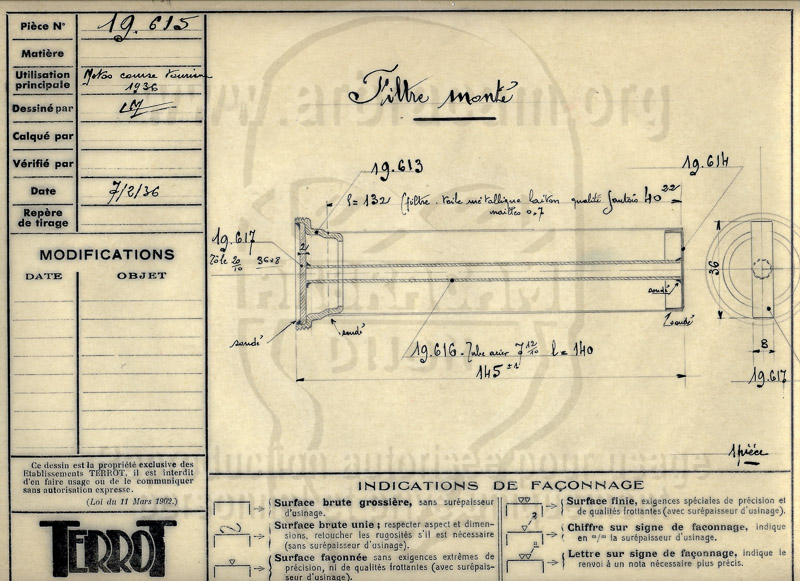 Pièce N° 19.615
Matière
Utilisation principale Motos course tourisme 1936
Dessiné par
Calqué par
Vérifié par
Date 7/2/36
Repère de tirage
MODIFICATIONS
DATE OBJET
Ce dessin est la propriété exclusive des
Etablissements TERROT, il est interdit
d'en faire usage ou de le communiquer
sans autorisation expresse.
(Loi du 11 Mars 1902.)
TERROT
www.
.org
Filtre monté
19.613
19.614
l = 132 (filtre. toile métallique laiton qualité 40
mailles 0,7
19.617
Tôle 20/10 36×8
2
soudé
soudé
soudé
soudé
19.616 - Tube acier 7 12/10 l = 140
145 ±1
36
8
19.617
1 pièce
DIJON
reproduction autorisée pour usage
INDICATIONS DE FAÇONNAGE
Surface brute grossière, sans surépaisseur
d'usinage.
Surface brute unie ; respecter aspect et dimen-
sions, retoucher les rugosités s'il est nécessaire
(sans surépaisseur d'usinage).
Surface façonnée sans exigences extrêmes de
précision, ni de qualités frottantes (avec surépais-
seur d'usinage).
Surface finie, exigences spéciales de précision et
de qualités frottantes (avec surépaisseur d'usinage).
Chiffre sur signe de faconnage, indique
en m/m la surépaisseur d'usinage.
Lettre sur signe de façonnage, indique le
renvoi à un nota nécessaire plus précis.